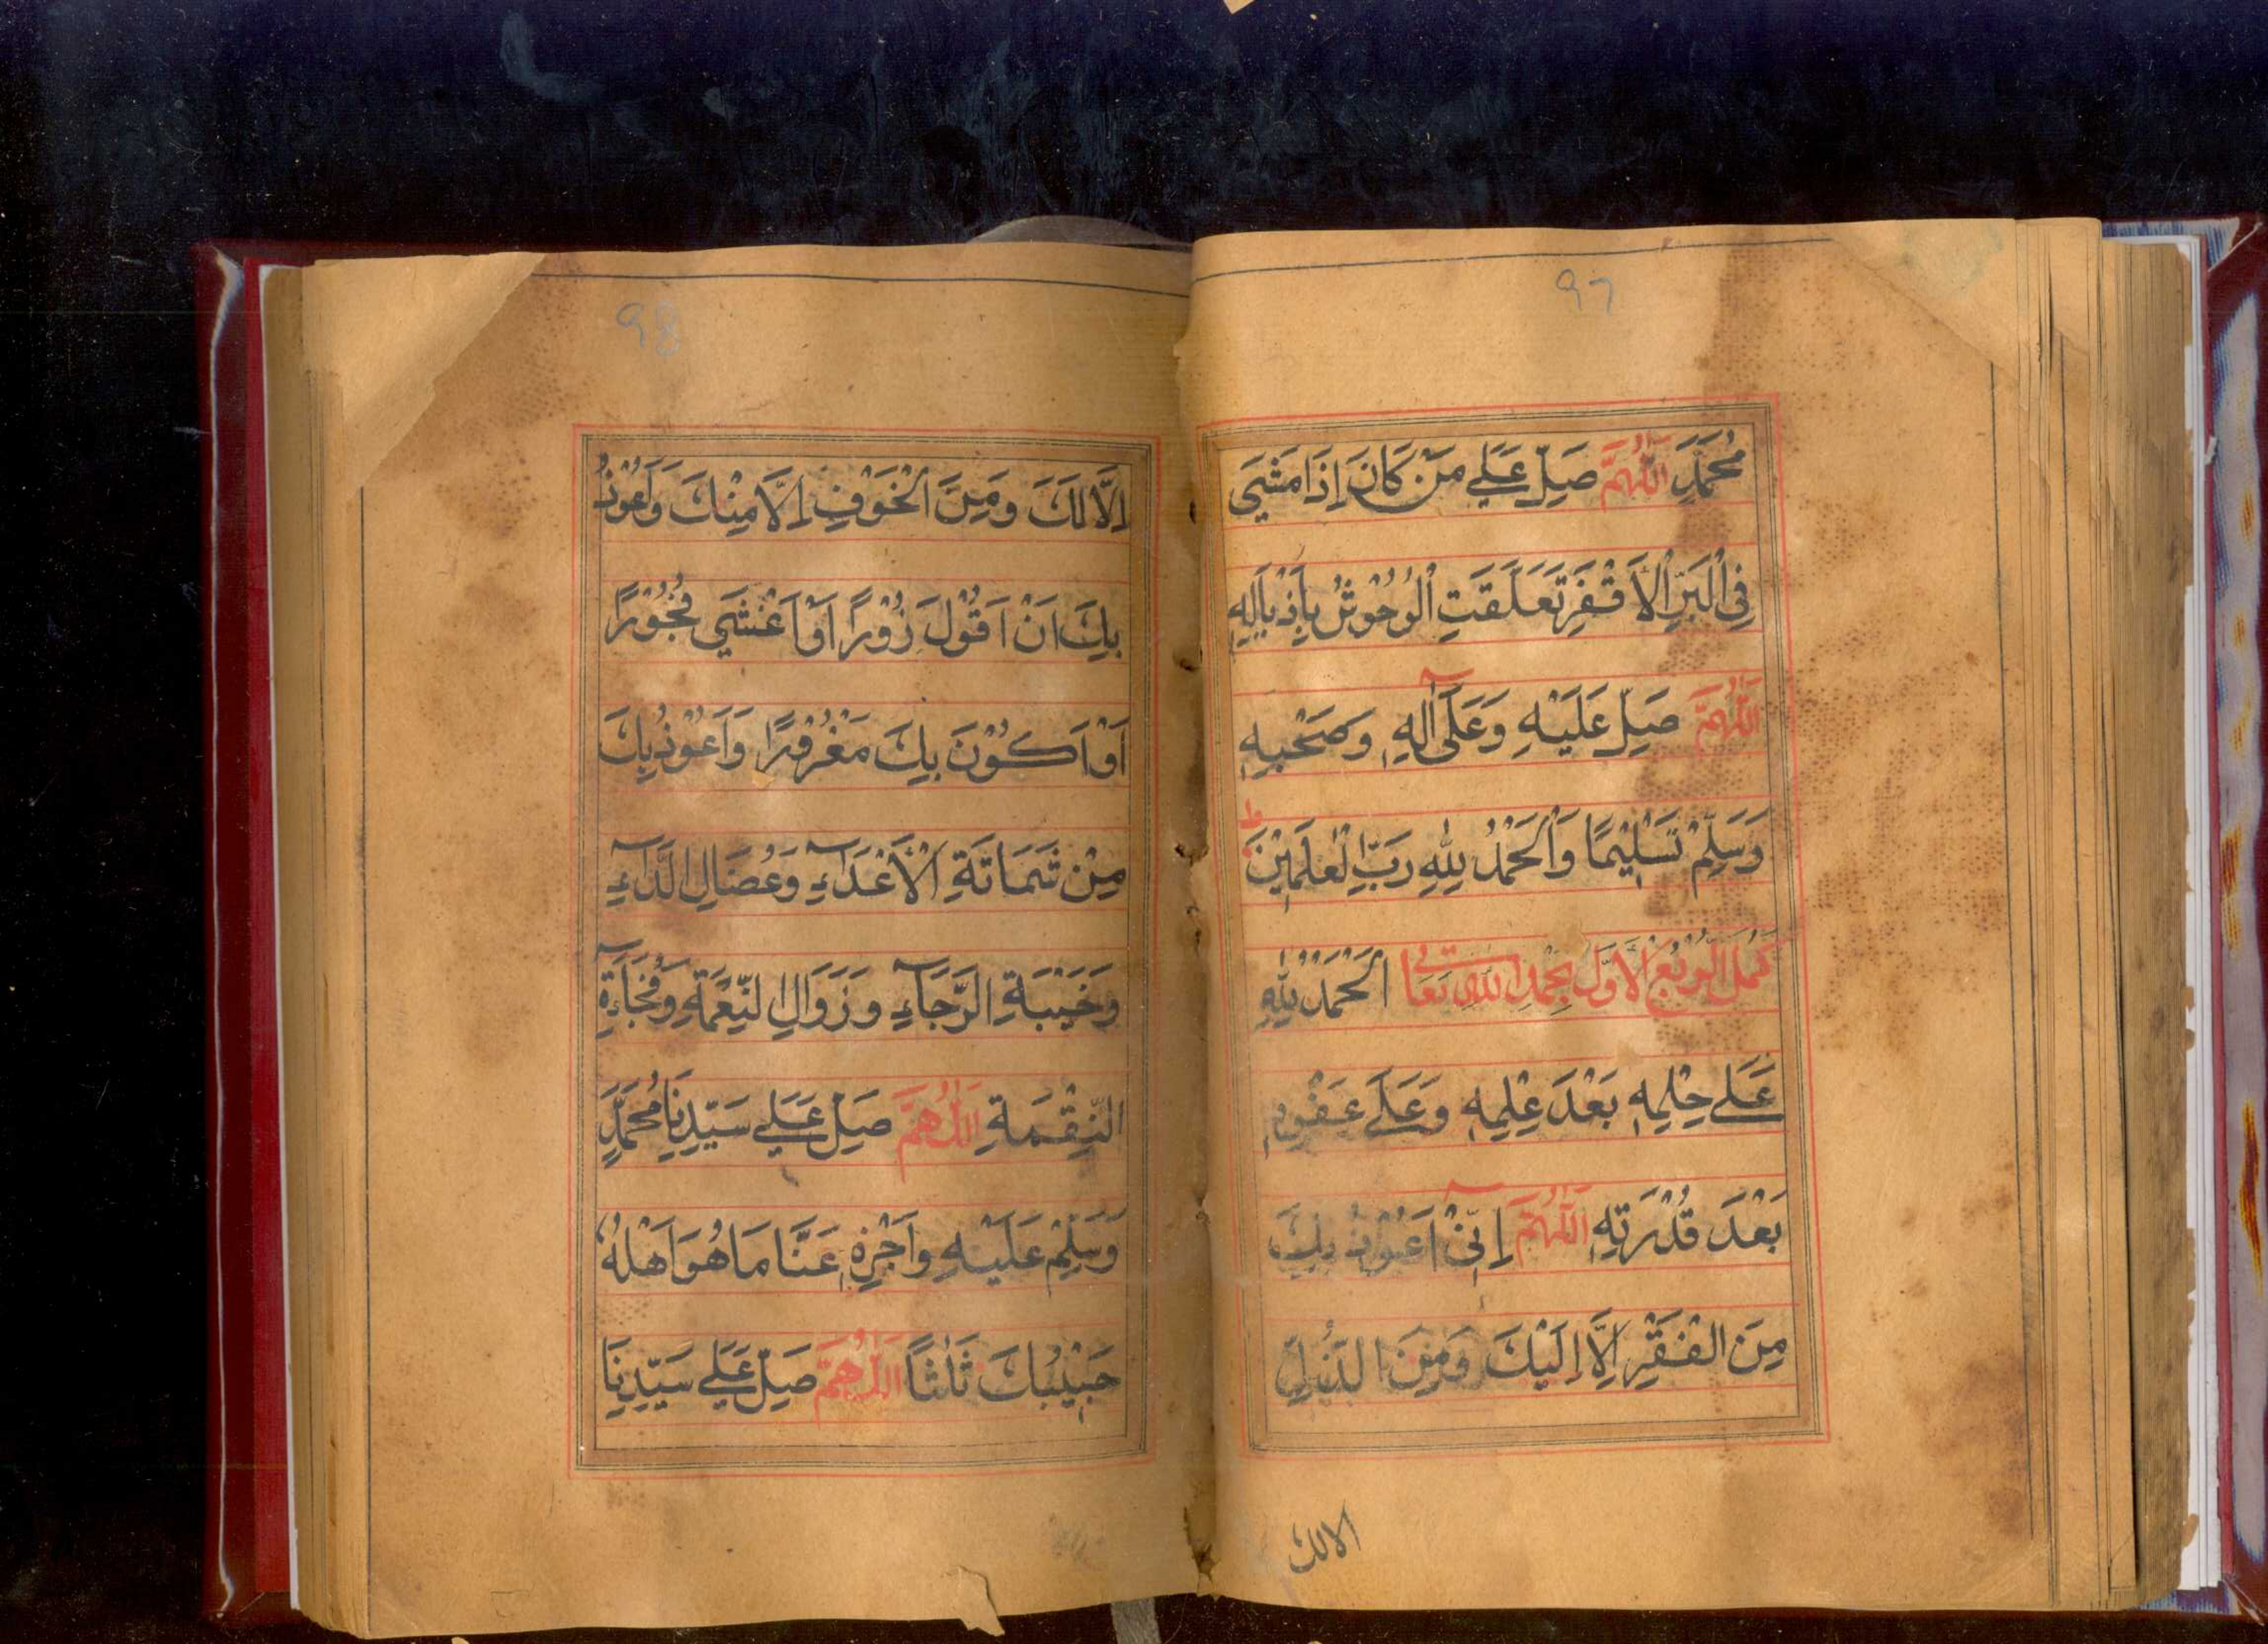 ٩٧
مُحَمَّدٍ اَللّٰهُمَّ صَلِّ عَلٰي مَنْ كَانَ اِذَا مَشٰي
فِي الْبَرِّ الْاَقْفَرِ تَعَلَّقَتِ الْوُحُوْشُ بِاَذْيَالِهِ
اَللّٰهُمَّ صَلِّ عَلَيْهِ وَعَلٰٓي اٰلِهِ وَصَحْبِهِ
وَسَلِّمْ تَسْلِيْمًا وَالْحَمْدُ لِلّٰهِ رَبِّ الْعٰلَمِيْنَ ط
كَمُلَ الرُّبْعُ الْاَوَّلُ بِحَمْدِ اللّٰهِ تَعَالٰي اَلْحَمْدُ لِلّٰهِ
عَلٰي حِلْمِهِ بَعْدَ عِلْمِهِ وَعَلٰي عَفْوِهِ
بَعْدَ قُدْرَتِهِ اَللّٰهُمَّ اِنِّيْٓ اَعُوْذُ بِكَ
مِنَ الْفَقْرِ اِلَّا اِلَيْكَ وَمِنَ الذُّلِّ
الا لك
٩٨
اِلَّا لَكَ وَمِنَ الْخَوْفِ اِلَّا مِنْكَ وَاَعُوْذُ
بِكَ اَنْ اَقُوْلَ زُوْرًا اَوْ اَغْشٰي فُجُوْرًا
اَوْ اَكُوْنَ بِكَ مَغْرُوْرًا وَاَعُوْذُ بِكَ
مِنْ شَمَاتَةِ الْاَعْدَآءِ وَعُضَالِ الدَّآءِ
وَخَيْبَةِ الرَّجَآءِ وَزَوَالِ النِّعْمَةِ وَفُجَآءَةِ
النِّقْمَةِ اَللّٰهُمَّ صَلِّ عَلٰي سَيِّدِنَا مُحَمَّدٍ
وَسَلِّمْ عَلَيْهِ وَاَجْزِهِ عَنَّا مَا هُوَ اَهْلُهُ
حَبِيْبُكَ ثَلٰثًا اَللّٰهُمَّ صَلِّ عَلٰي سَيِّدِنَا